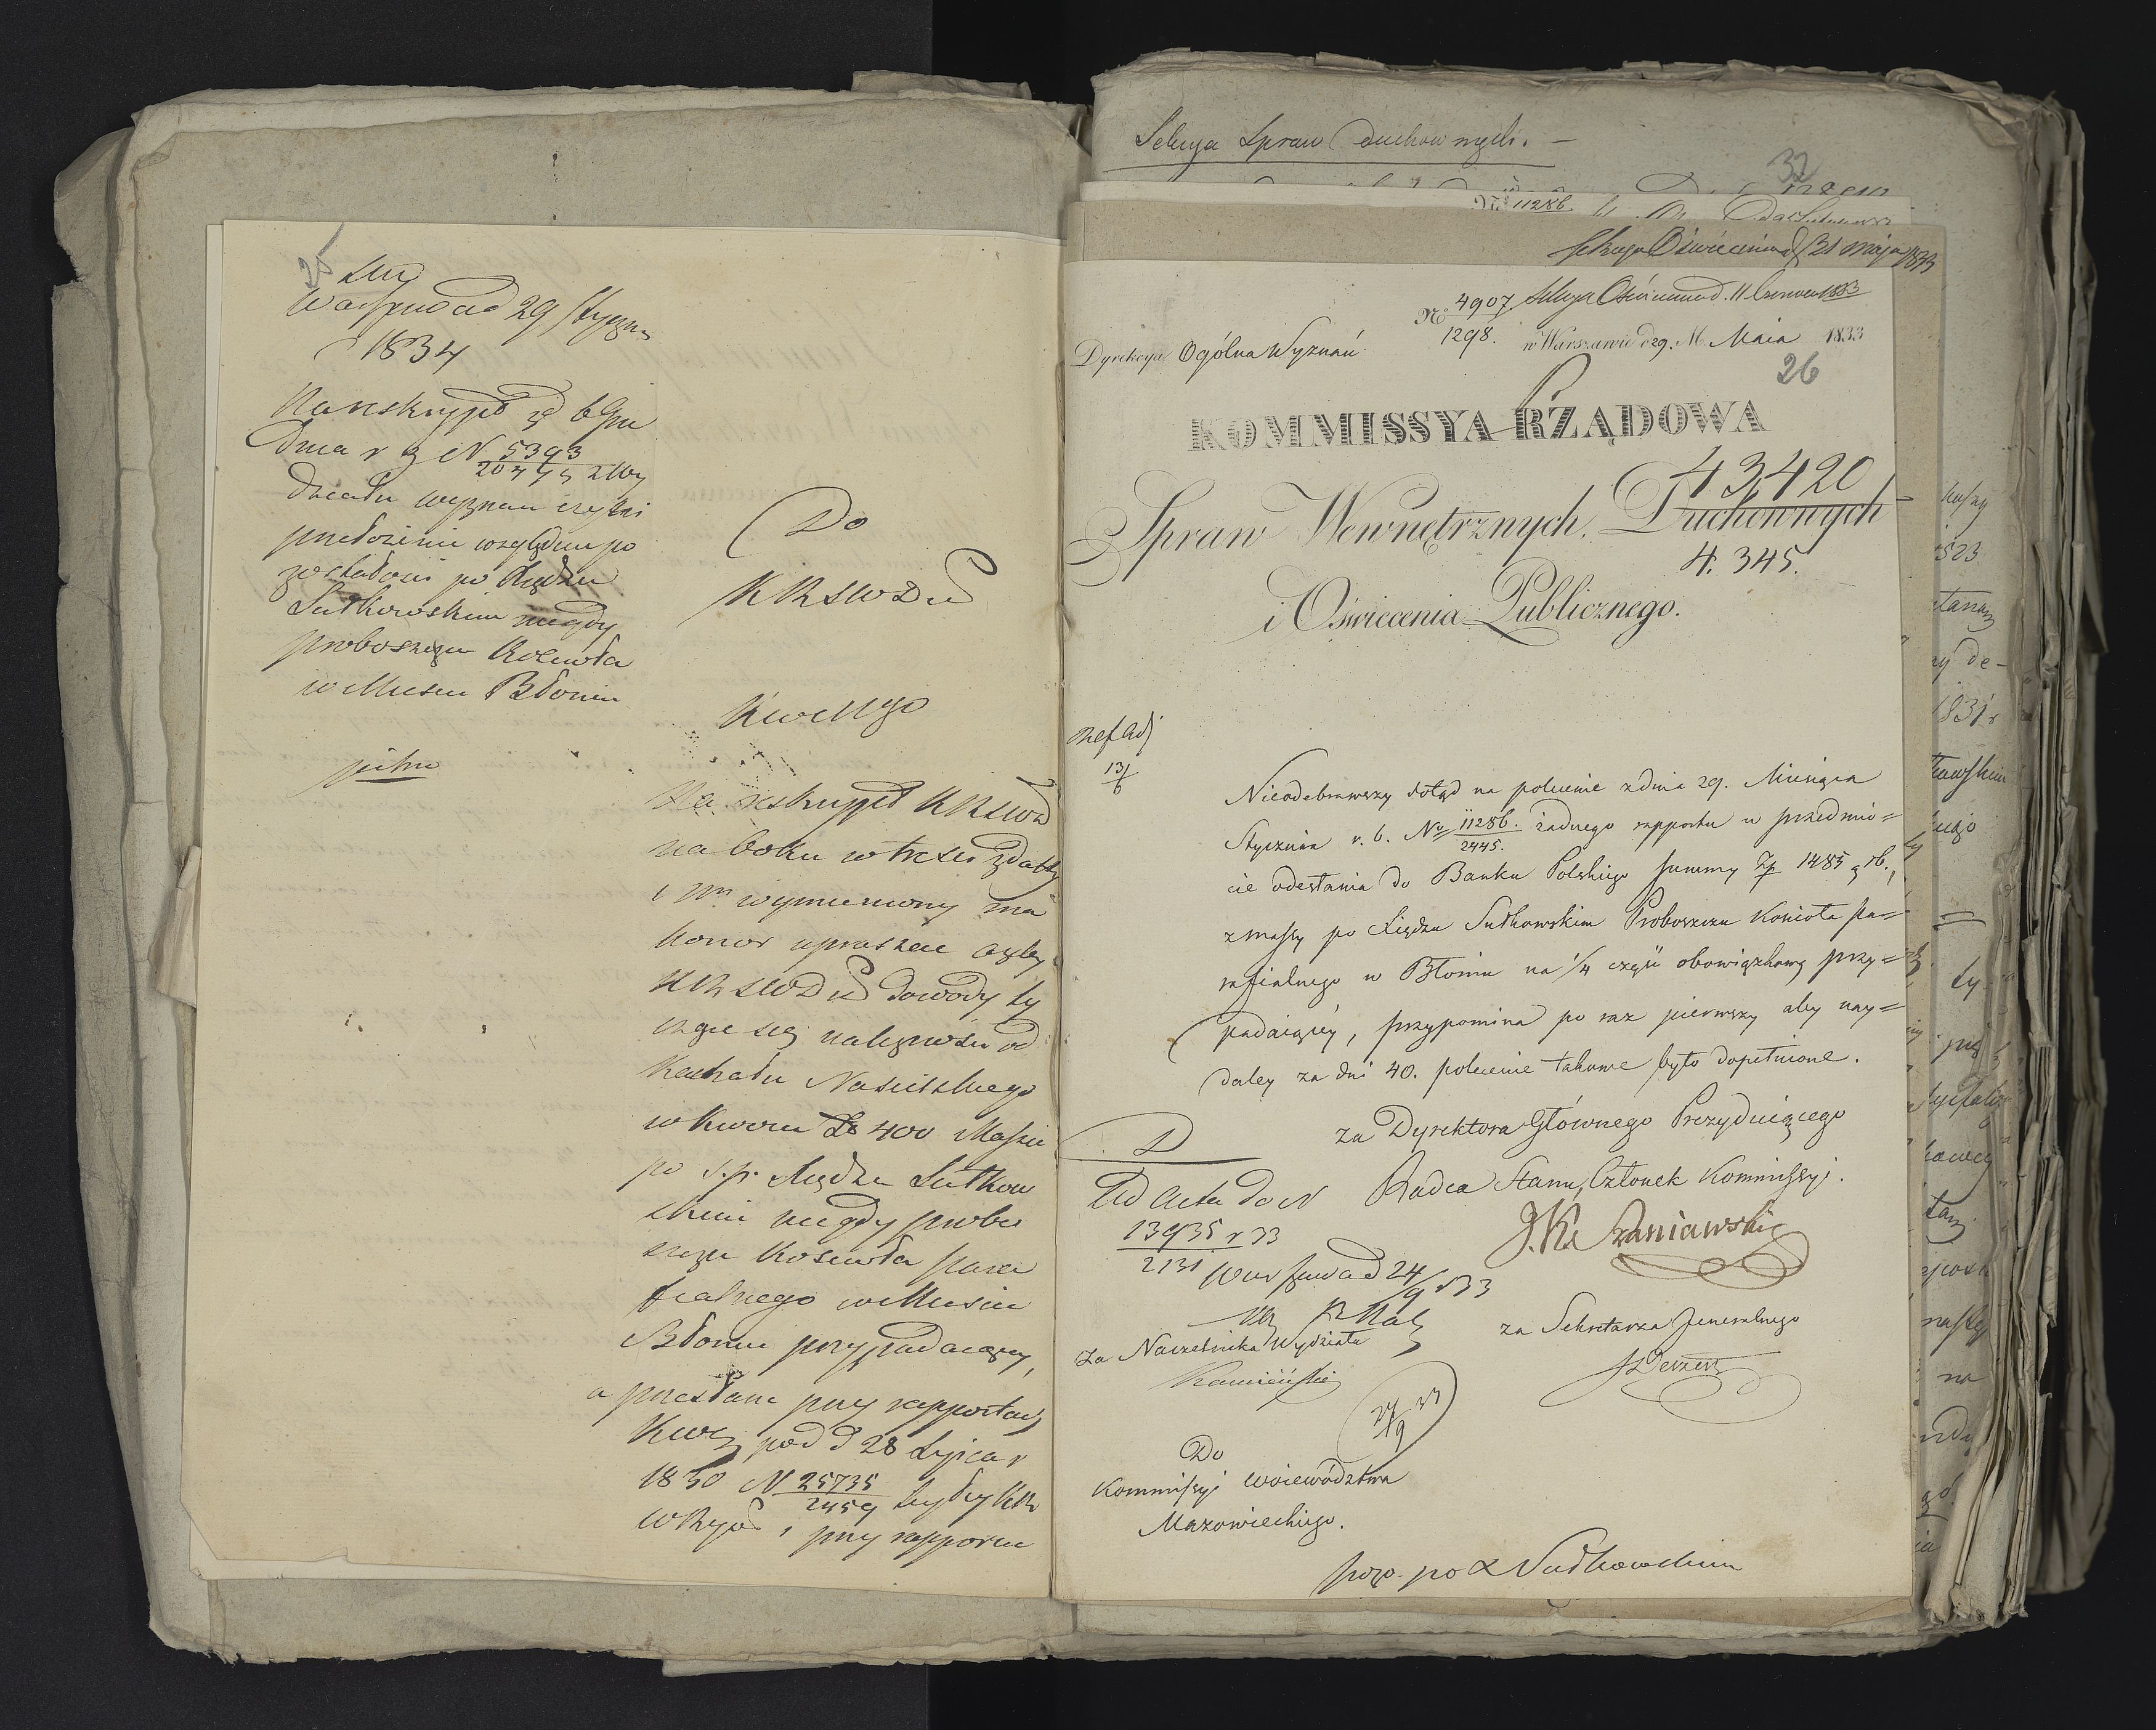 25
Warszawa d 29 Stycznia
1834
Na reskrypt z d 6 Gru
dnia r z N 5393
20775 z Wy
działu wyznań czyści
przełożenie względem po
zostałości po Księdzu
Sutkowskim niegdy
proboszczu Kościoła
w Mieście Błoniu
pilno
Do
KRSWDiO
KWMgo
Na reskrypt KRSWD
na boku w treści z daty
i Nru wymieniony ma
honor upraszać ażeby
KRSWDiO dowody ty
czące się należności od
Kahału Nasielskiego
w kwocie Zł 400 Massie
po ś.p. Księdzu Sutkow
skim niegdy probo
szczu Kościoła para
fialnego w Mieście
Błoniu przypadaiącey,
a przesłane przy rapportach
KWM pod d 28 Lipca r
1830 N 25735
2459 byłey KR
WRyOP, i przy rapporcie
Sekcya Spraw Duchownych. —
32
No 11286
Sekcya Oświecenia d 21 maja 1833
No 4907
1298.
Sekcya Oświecenia d. 11 Czerwca 1833
Dyrekcya Ogólna Wyznań
w Warszawie d 29. M. Maia 1833
26
KOMMISSYA RZĄDOWA
43,420
Spraw Wewnętrznych, Duchownych
4.345.
i Oświecenia Publicznego.
Ref Adj
13/6
Nieodebrawszy dotąd na polecenie z dnia 29. Miesiąca
Stycznia r. b. No 11286. żadnego rapportu w przedmio=
2445.
cie odesłania do Banku Polskiego summy Zp 1485 g 16.,
z massy po Xiędzu Sutkowskim Proboszczu Kościoła pa=
rafialnego w Błoniu na 1/4 część obowiązkową przy=
padaiącéy, przypomina po raz pierwszy aby nay=
daley za dni 40. polecenie takowe było dopełnione.
za Dyrektora Głównego Prezyduiącego
Radca Stanu, Członek Kommissyi.
J.K. Szaniawski
D
Ad Acta do N
13935 r 33
2131
Warszawa d 24/9 833
za Naczelnika Wydziału
Kamieński
za Sekretarza Jeneralnego
24/9 33
Do
Kommissyi Woiewództwa
Mazowieckiego.
poz. po X Sutkowskim